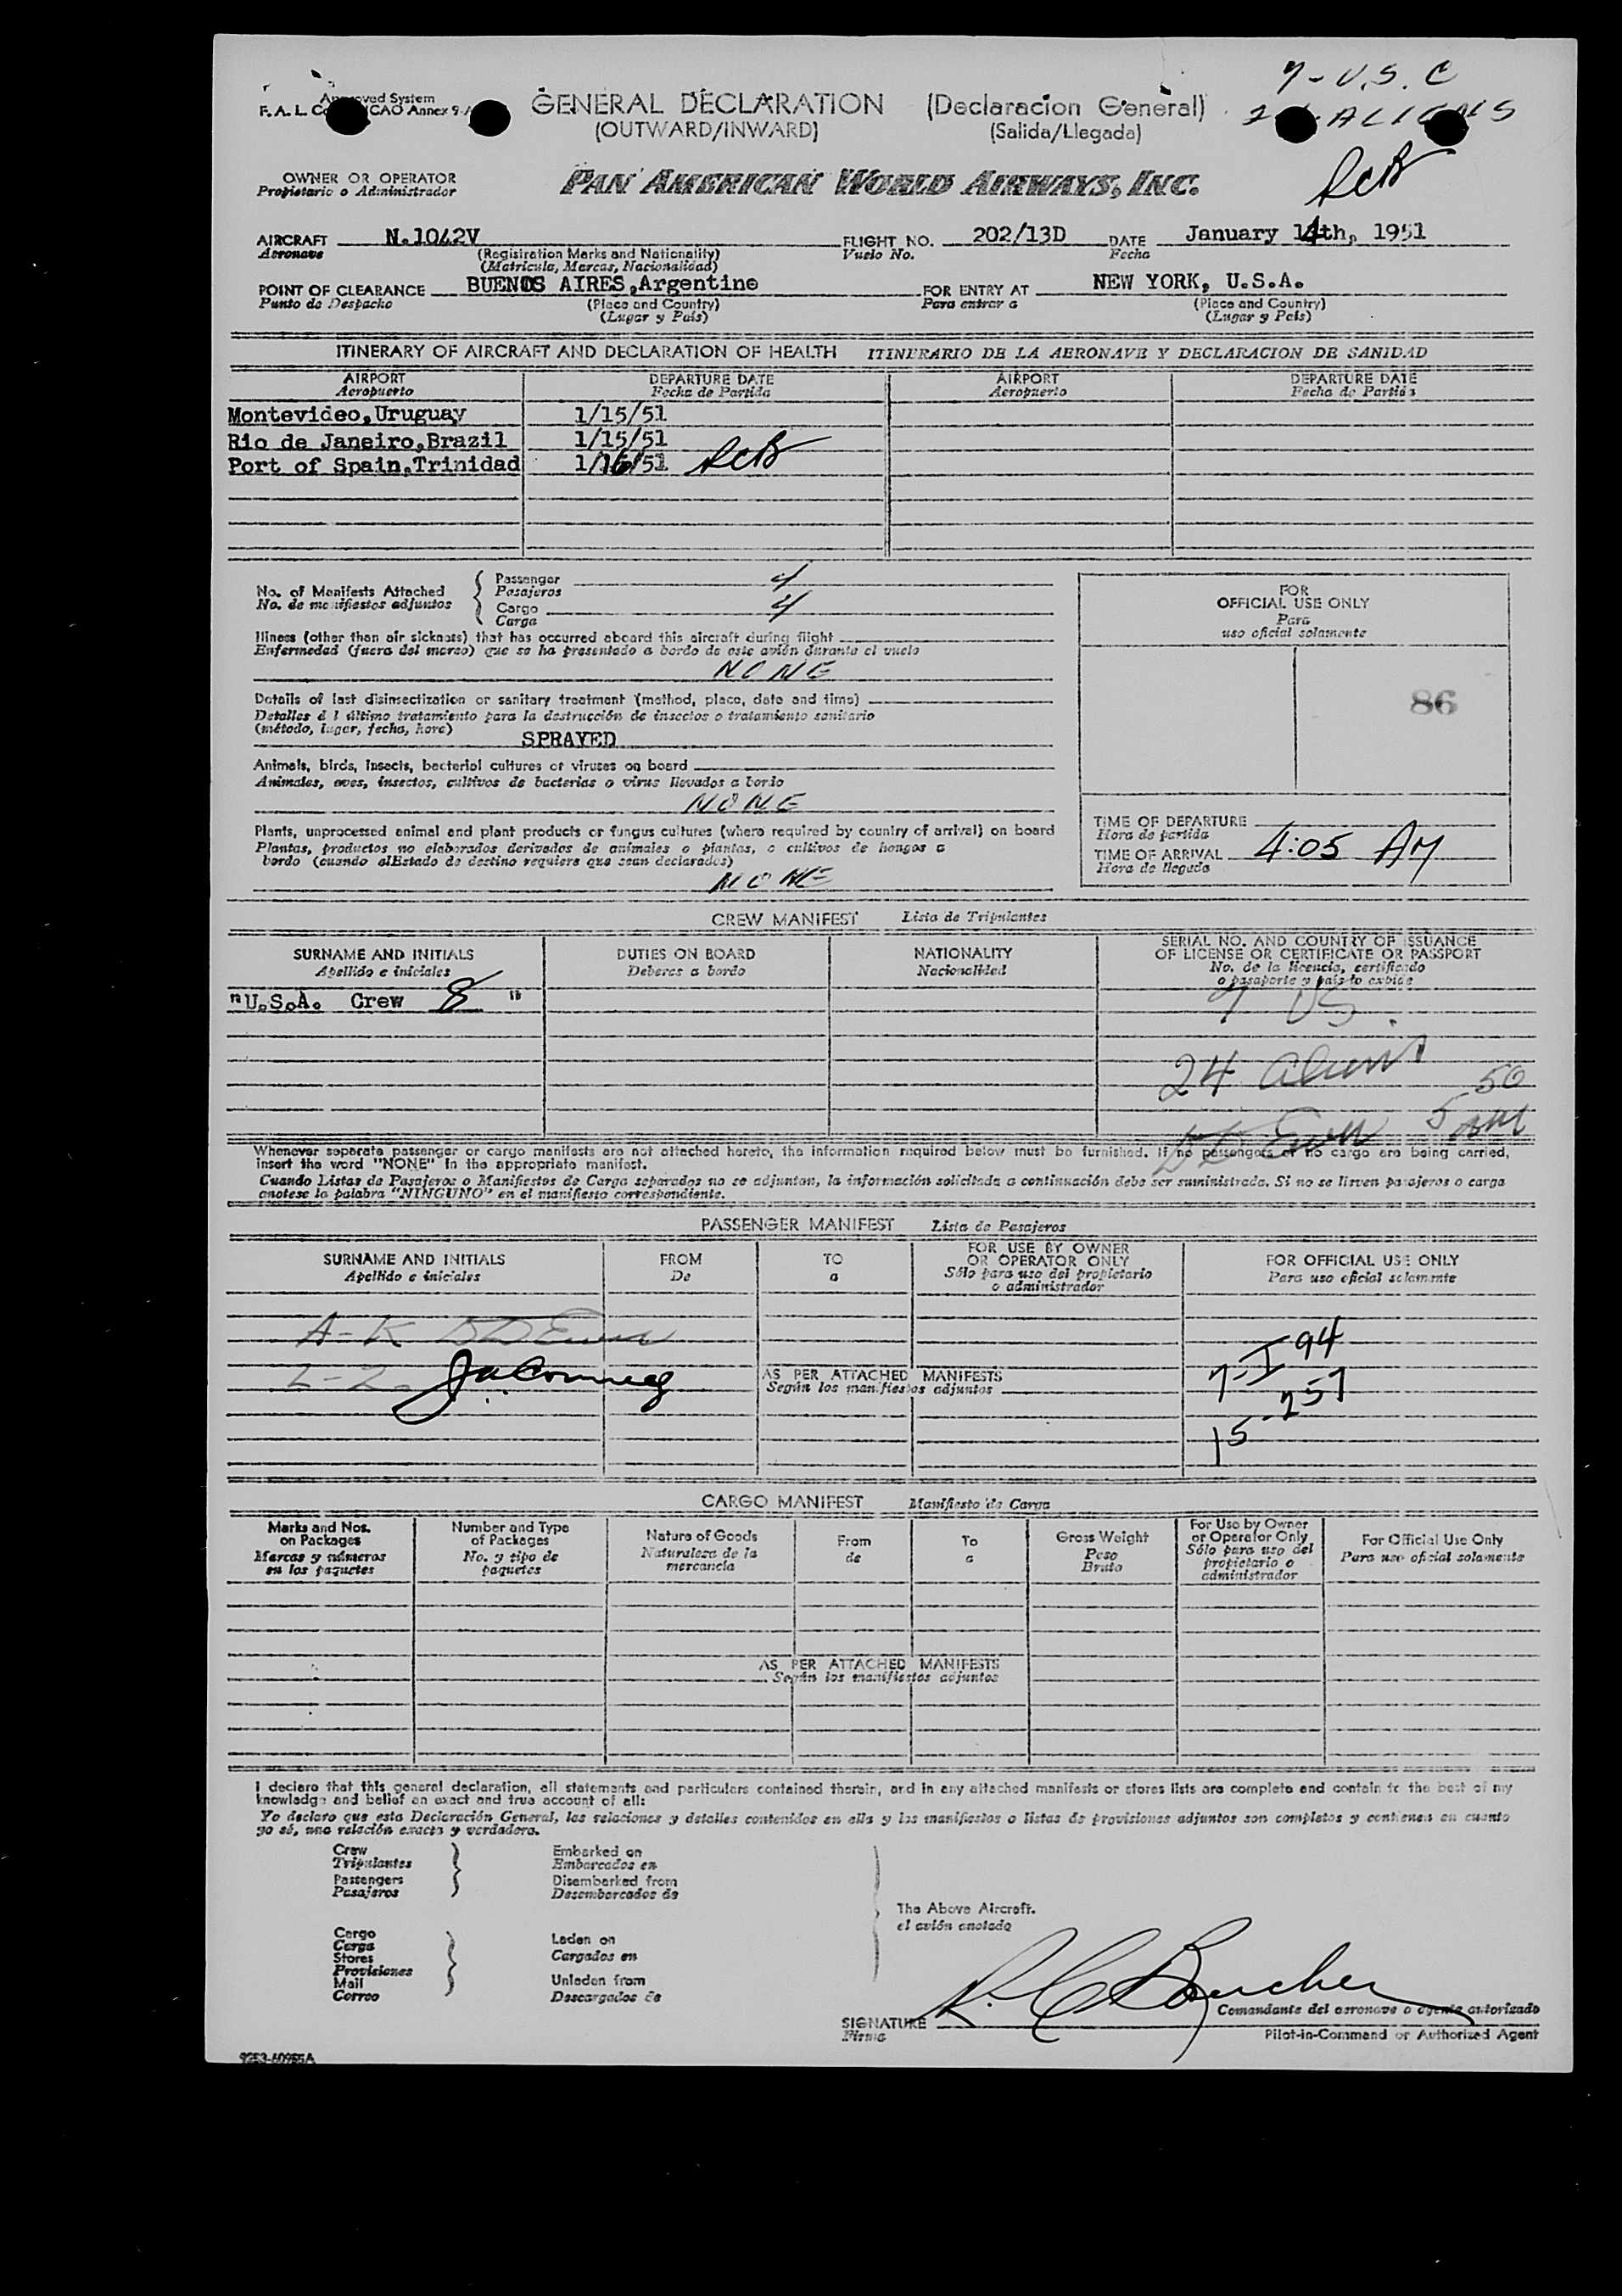 7 - U.S.C
ALIENS
Approved System
F.A.L. ICAO Annex 9
GENERAL DECLARATION (Declaracion General)
(OUTWARD/INWARD) (Salida/Llegada)
RCB
OWNER OR OPERATOR
Propietario o Administrador
PAN AMERICAN WORLD AIRWAYS, INC.
AIRCRAFT N.1042V FLIGHT NO. 202/13D DATE January 14th, 1951
Aeronave (Registration Marks and Nationality) Vuelo No. Fecha
(Matricula, Marcas, Nacionalidad)
POINT OF CLEARANCE BUENOS AIRES, Argentine FOR ENTRY AT NEW YORK, U.S.A.
Punto de Despacho (Place and Country) Para entrar a (Place and Country)
(Lugar y País) (Lugar y País)
ITINERARY OF AIRCRAFT AND DECLARATION OF HEALTH ITINERARIO DE LA AERONAVE Y DECLARACION DE SANIDAD
AIRPORT DEPARTURE DATE AIRPORT DEPARTURE DATE
Aeropuerto Fecha de Partida Aeropuerto Fecha de Partida
Montevideo,Uruguay 1/15/51
Rio de Janeiro,Brazil 1/15/51
Port of Spain,Trinidad 1/16/51 RCB
No. of Manifests Attached Passenger 4
No. de manifiestos adjuntos Pasajeros
Cargo 4
Carga
Illness (other than air sickness) that has occurred aboard this aircraft during flight
Enfermedad (fuera del mareo) que se ha presentado a bordo de este avión durante el vuelo
NONE
Details of last disinsectization or sanitary treatment (method, place, date and time)
Detalles d l último tratamiento para la destrucción de insectos o tratamiento sanitario
(método, lugar, fecha, hora)
SPRAYED
Animals, birds, insects, bacterial cultures or viruses on board
Animales, aves, insectos, cultivos de bacterias o virus llevados a bordo
NONE
Plants, unprocessed animal and plant products or fungus cultures (where required by country of arrival) on board
Plantas, productos no elaborados derivados de animales o plantas, o cultivos de hongos a
bordo (cuando elEstado de destino requiera que sean declarados)
NONE
FOR
OFFICIAL USE ONLY
Para
uso oficial solamente
86
TIME OF DEPARTURE
Hora de partida
TIME OF ARRIVAL 4:05 AM
Hora de llegada
CREW MANIFEST Lista de Tripulantes
SURNAME AND INITIALS DUTIES ON BOARD NATIONALITY SERIAL NO. AND COUNTRY OF ISSUANCE
OF LICENSE OR CERTIFICATE OR PASSPORT
Apellido e iniciales Deberes a bordo Nacionalidad No. de la licencia, certificado
o pasaporte y país lo exbide
"U.S.A. Crew 8 " 7 US.
24 aliens
50
5 AM
Whenever separate passenger or cargo manifests are not attached hereto, the information required below must be furnished. If no passengers or no cargo are being carried,
insert the word "NONE" in the appropriate manifest.
Cuando Listas de Pasajeros o Manifiestos de Carga separados no se adjuntan, la información solicitada a continuación debe ser suministrada. Si no se llevan pasajeros o carga
anotese la palabra "NINGUNO" en el manifiesto correspondiente.
PASSENGER MANIFEST Lista de Pasajeros
SURNAME AND INITIALS FROM TO FOR USE BY OWNER
OR OPERATOR ONLY FOR OFFICIAL USE ONLY
Apellido e iniciales De a Sólo para uso del propietario
o administrador Para uso oficial solamente
A-K
L-Z
AS PER ATTACHED MANIFESTS
Según los manifiestos adjuntos
7-I 94
15 257
CARGO MANIFEST Manifiesto de Carga
Marks and Nos.
on Packages
Marcas y números
en los paquetes
Number and Type
of Packages
No. y tipo de
paquetes
Nature of Goods
Naturaleza de la
mercancía
From
de
To
a
Gross Weight
Peso
Bruto
For Use by Owner
or Operator Only
Sólo para uso del
propietario o
administrador
For Official Use Only
Para uso oficial solamente
AS PER ATTACHED MANIFESTS
Según los manifiestos adjuntos
I declare that this general declaration, all statements and particulars contained therein, and in any attached manifests or stores lists are complete and contain to the best of my
knowledge and belief an exact and true account of all:
Yo declaro que esta Declaración General, las relaciones y detalles contenidos en ella y los manifiestos o listas de provisiones adjuntos son completos y contienen en cuanto
yo sé, una relación exacta y verdadera.
Crew
Tripulantes
Passengers
Pasajeros
Embarked on
Embarcados en
Disembarked from
Desembarcados de
Cargo
Carga
Stores
Provisiones
Mail
Correo
Laden on
Cargados en
Unladen from
Descargados de
The Above Aircraft.
el avión anotado
R. C. Boucher
Comandante del aeronave o agente autorizado
SIGNATURE
Firma
Pilot-in-Command or Authorized Agent